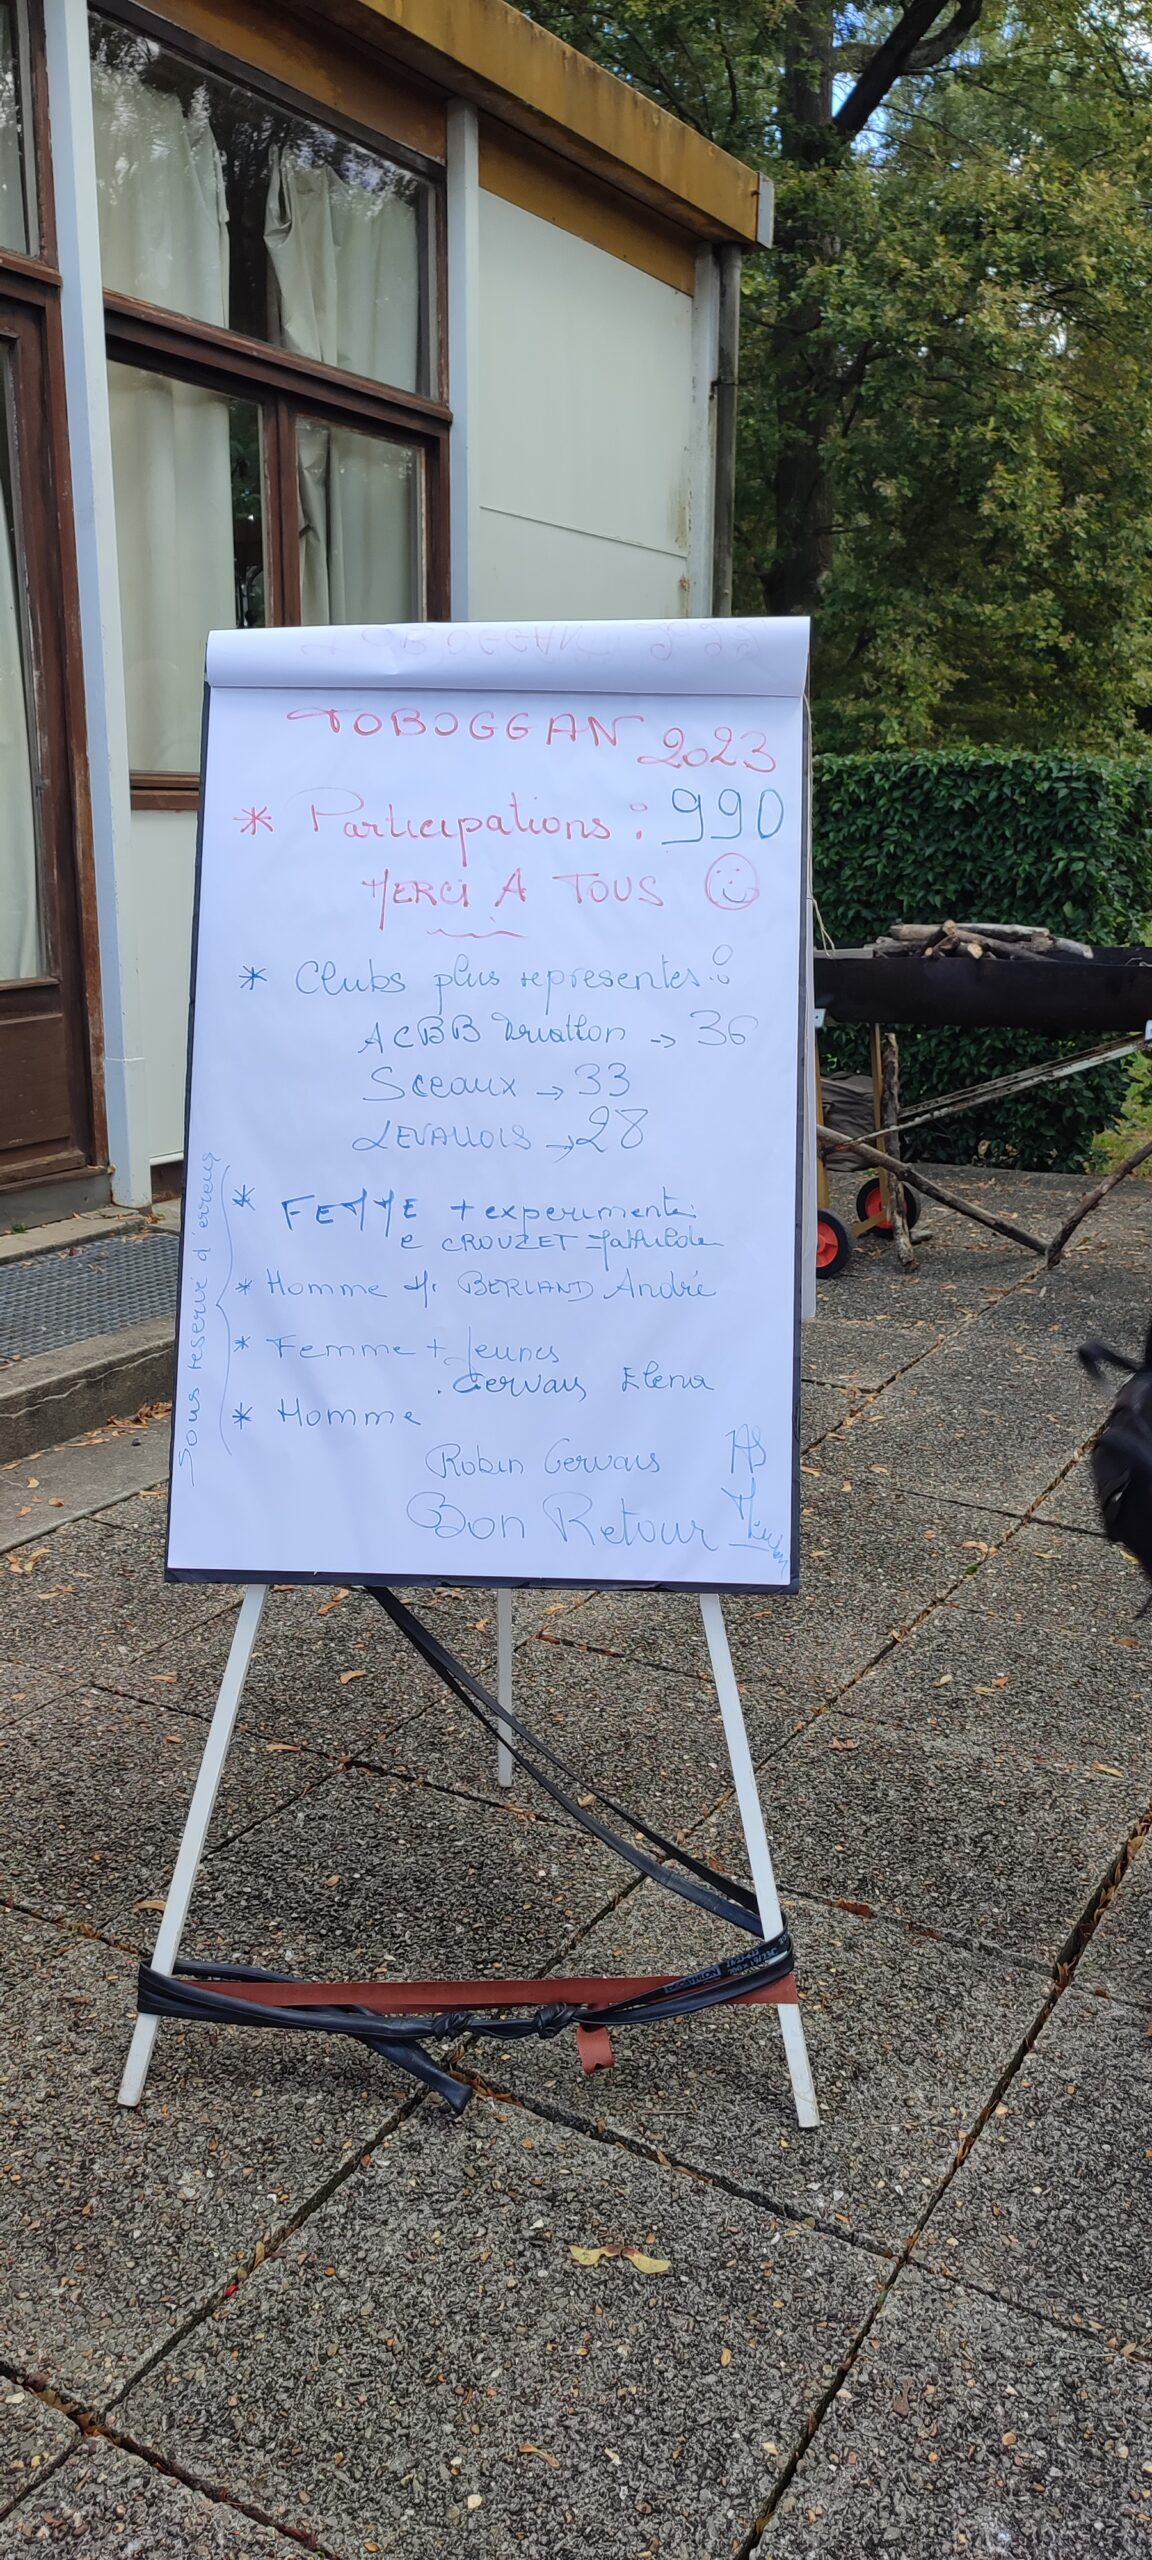 TOBOGGAN 2023
* Participations : 990
MERCI A TOUS
* Clubs plus representes :
ACBB Triathlon -> 36
Sceaux -> 33
LEVALLOIS -> 28
* FEMME + experimenté
e CROUZET Mathilde
* Homme // BERLAND André
* Femme + Jeunes
. Gervais Elena
* Homme
Robin Gervais
Bon Retour
Sous reserve d'erreurs
DECATHLON